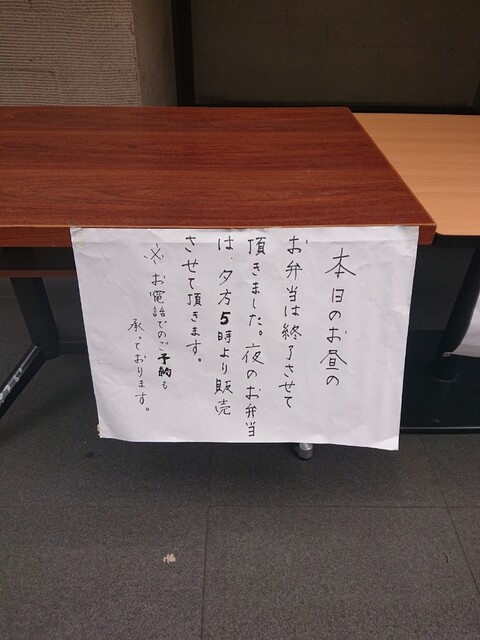 本日のお昼の
お弁当は終了させて
頂きました。夜のお弁当
は、夕方5時より販売
させて頂きます。
※お電話でのご予約も
承っております。